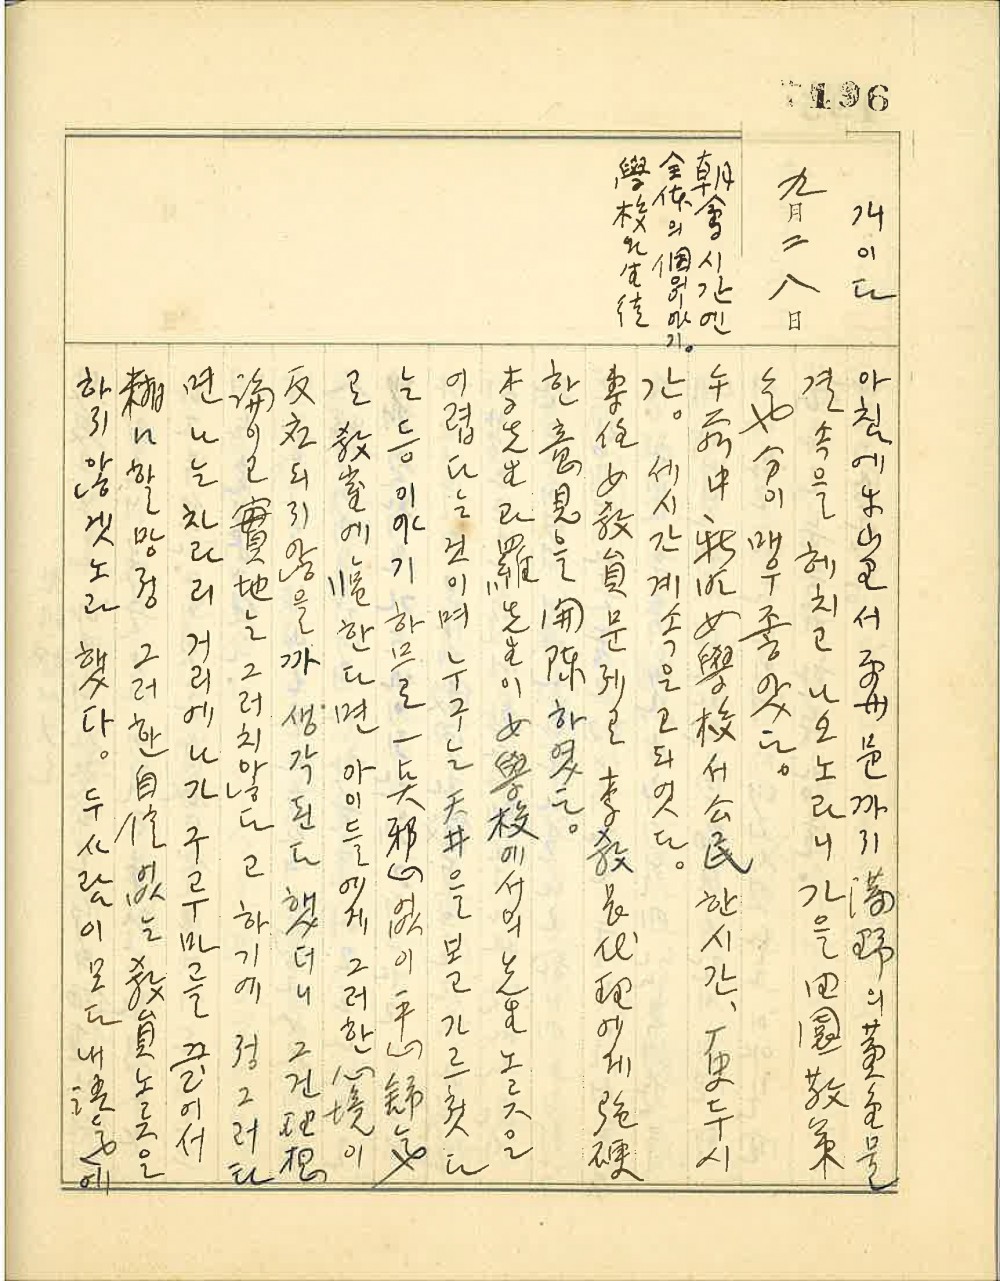 196
개이다
九月二八日
朝會시간엔
全体의 個別이야기。
學校와 生徒
아침에 牛山里서 邑까지 滿野의 黃金물
결 속을 헤치고 나오노라니 가을 田園
氣分이 매우 좋았다。
午前中 女學校서 公民 한시간, 史 두시
간。 세시간 계속으로 되엿다。
專任 女敎員 문제로 李敎長代理에게 强硬
한 意見을 開陳하였다。
李先生과 羅先生이 女學校에서의 先生노릇은
어렵다는 것이며 누구는 天井을 보고 가르쳣다
는 등 이야기 하므로 一失 邪心없이 平心
로 敎室에 臨한다면 아이들에게 그러한 心境이
反応되지 않을까 생각된다 했더니 그건 理想
論이고 實地는 그러치 않다고 하기에 정 그러타
면 나는 차라리 거리에 나가 구루마를 끌어서
糊口할망정 그러한 自信없는 敎員노릇은
하지 않겟노라 했다。 두사람이 모다 내 에